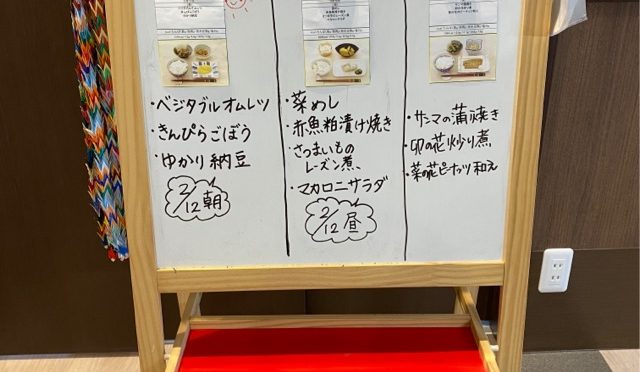 ・ベジタブルオムレツ
・きんぴらごぼう
・ゆかり納豆
2/12 朝
・菜めし
・赤魚粕漬け焼き
・さつまいもの
レーズン煮
・マカロニサラダ
2/12 昼
・サンマの蒲焼き
・卯の花炒り煮
・菜の花ピーナッツ和え